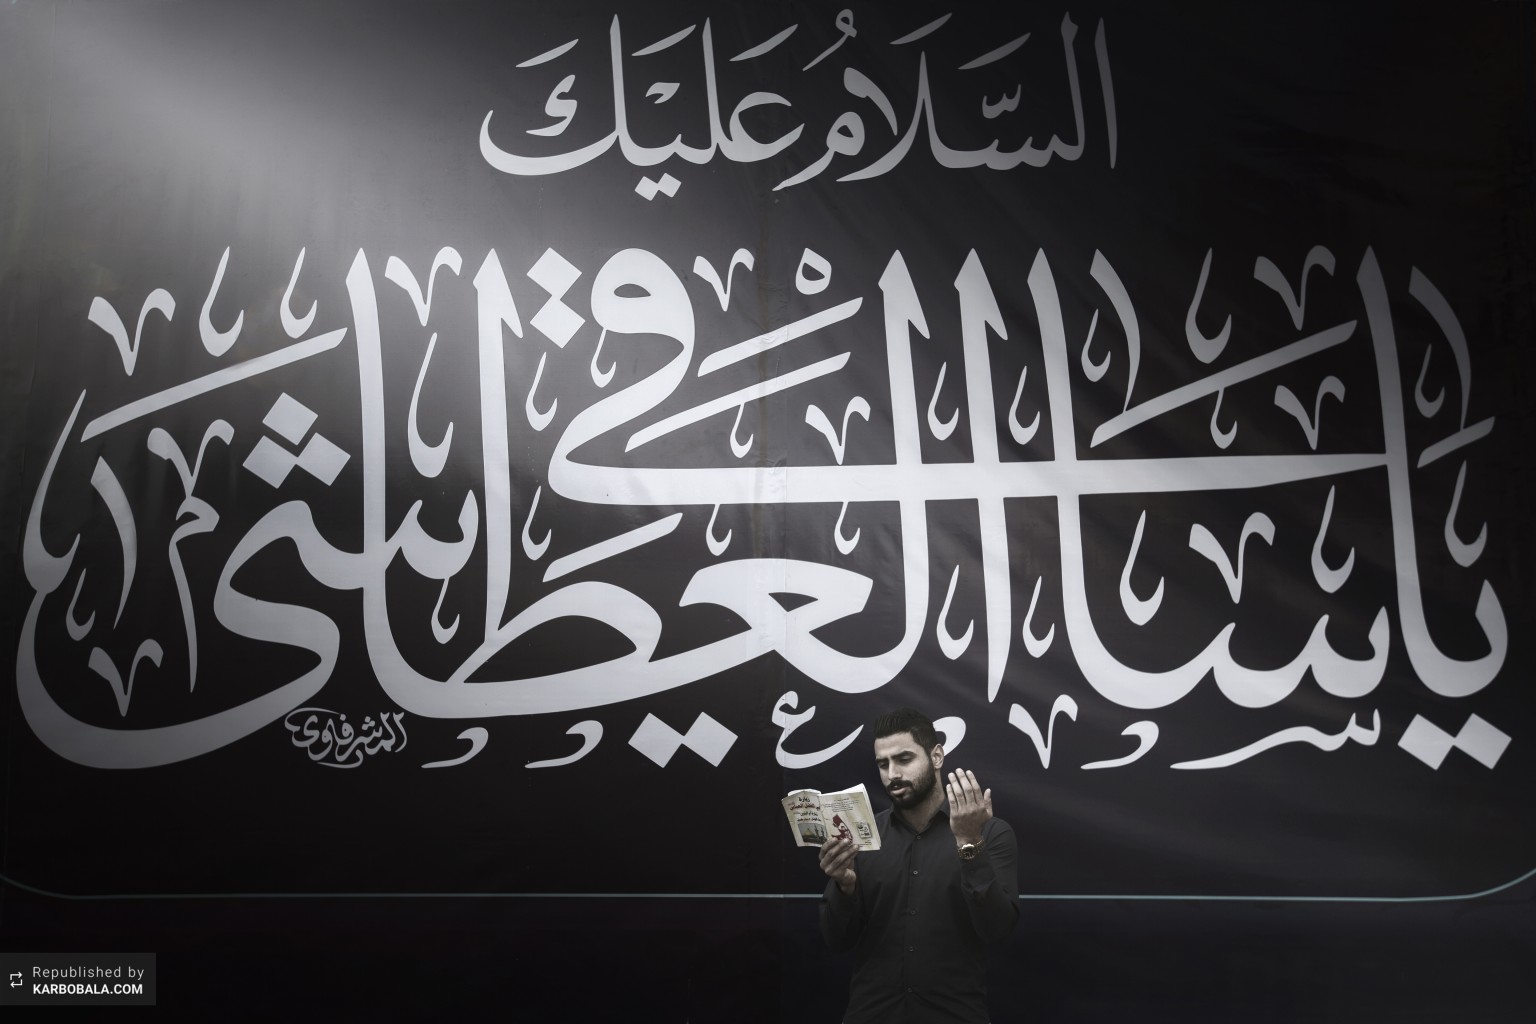 السَّلَامُ عَلَيْكَ
يا ساقي العطاشى
المشرفاوي
زيارة
Republished by
KARBOBALA.COM